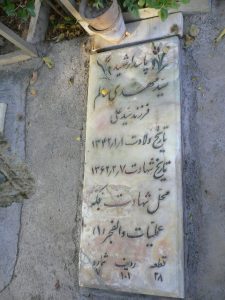 پاسدار شهید
سید مهدی
فرزند سید علی
تاریخ ولادت ۱۳۴۲/۱/۱
تاریخ شهادت ۱۳۶۲/۲/۷
محل شهادت فکه
عملیات والفجر (۱)
قطعه ردیف شماره
۲۸ ۱۰۱